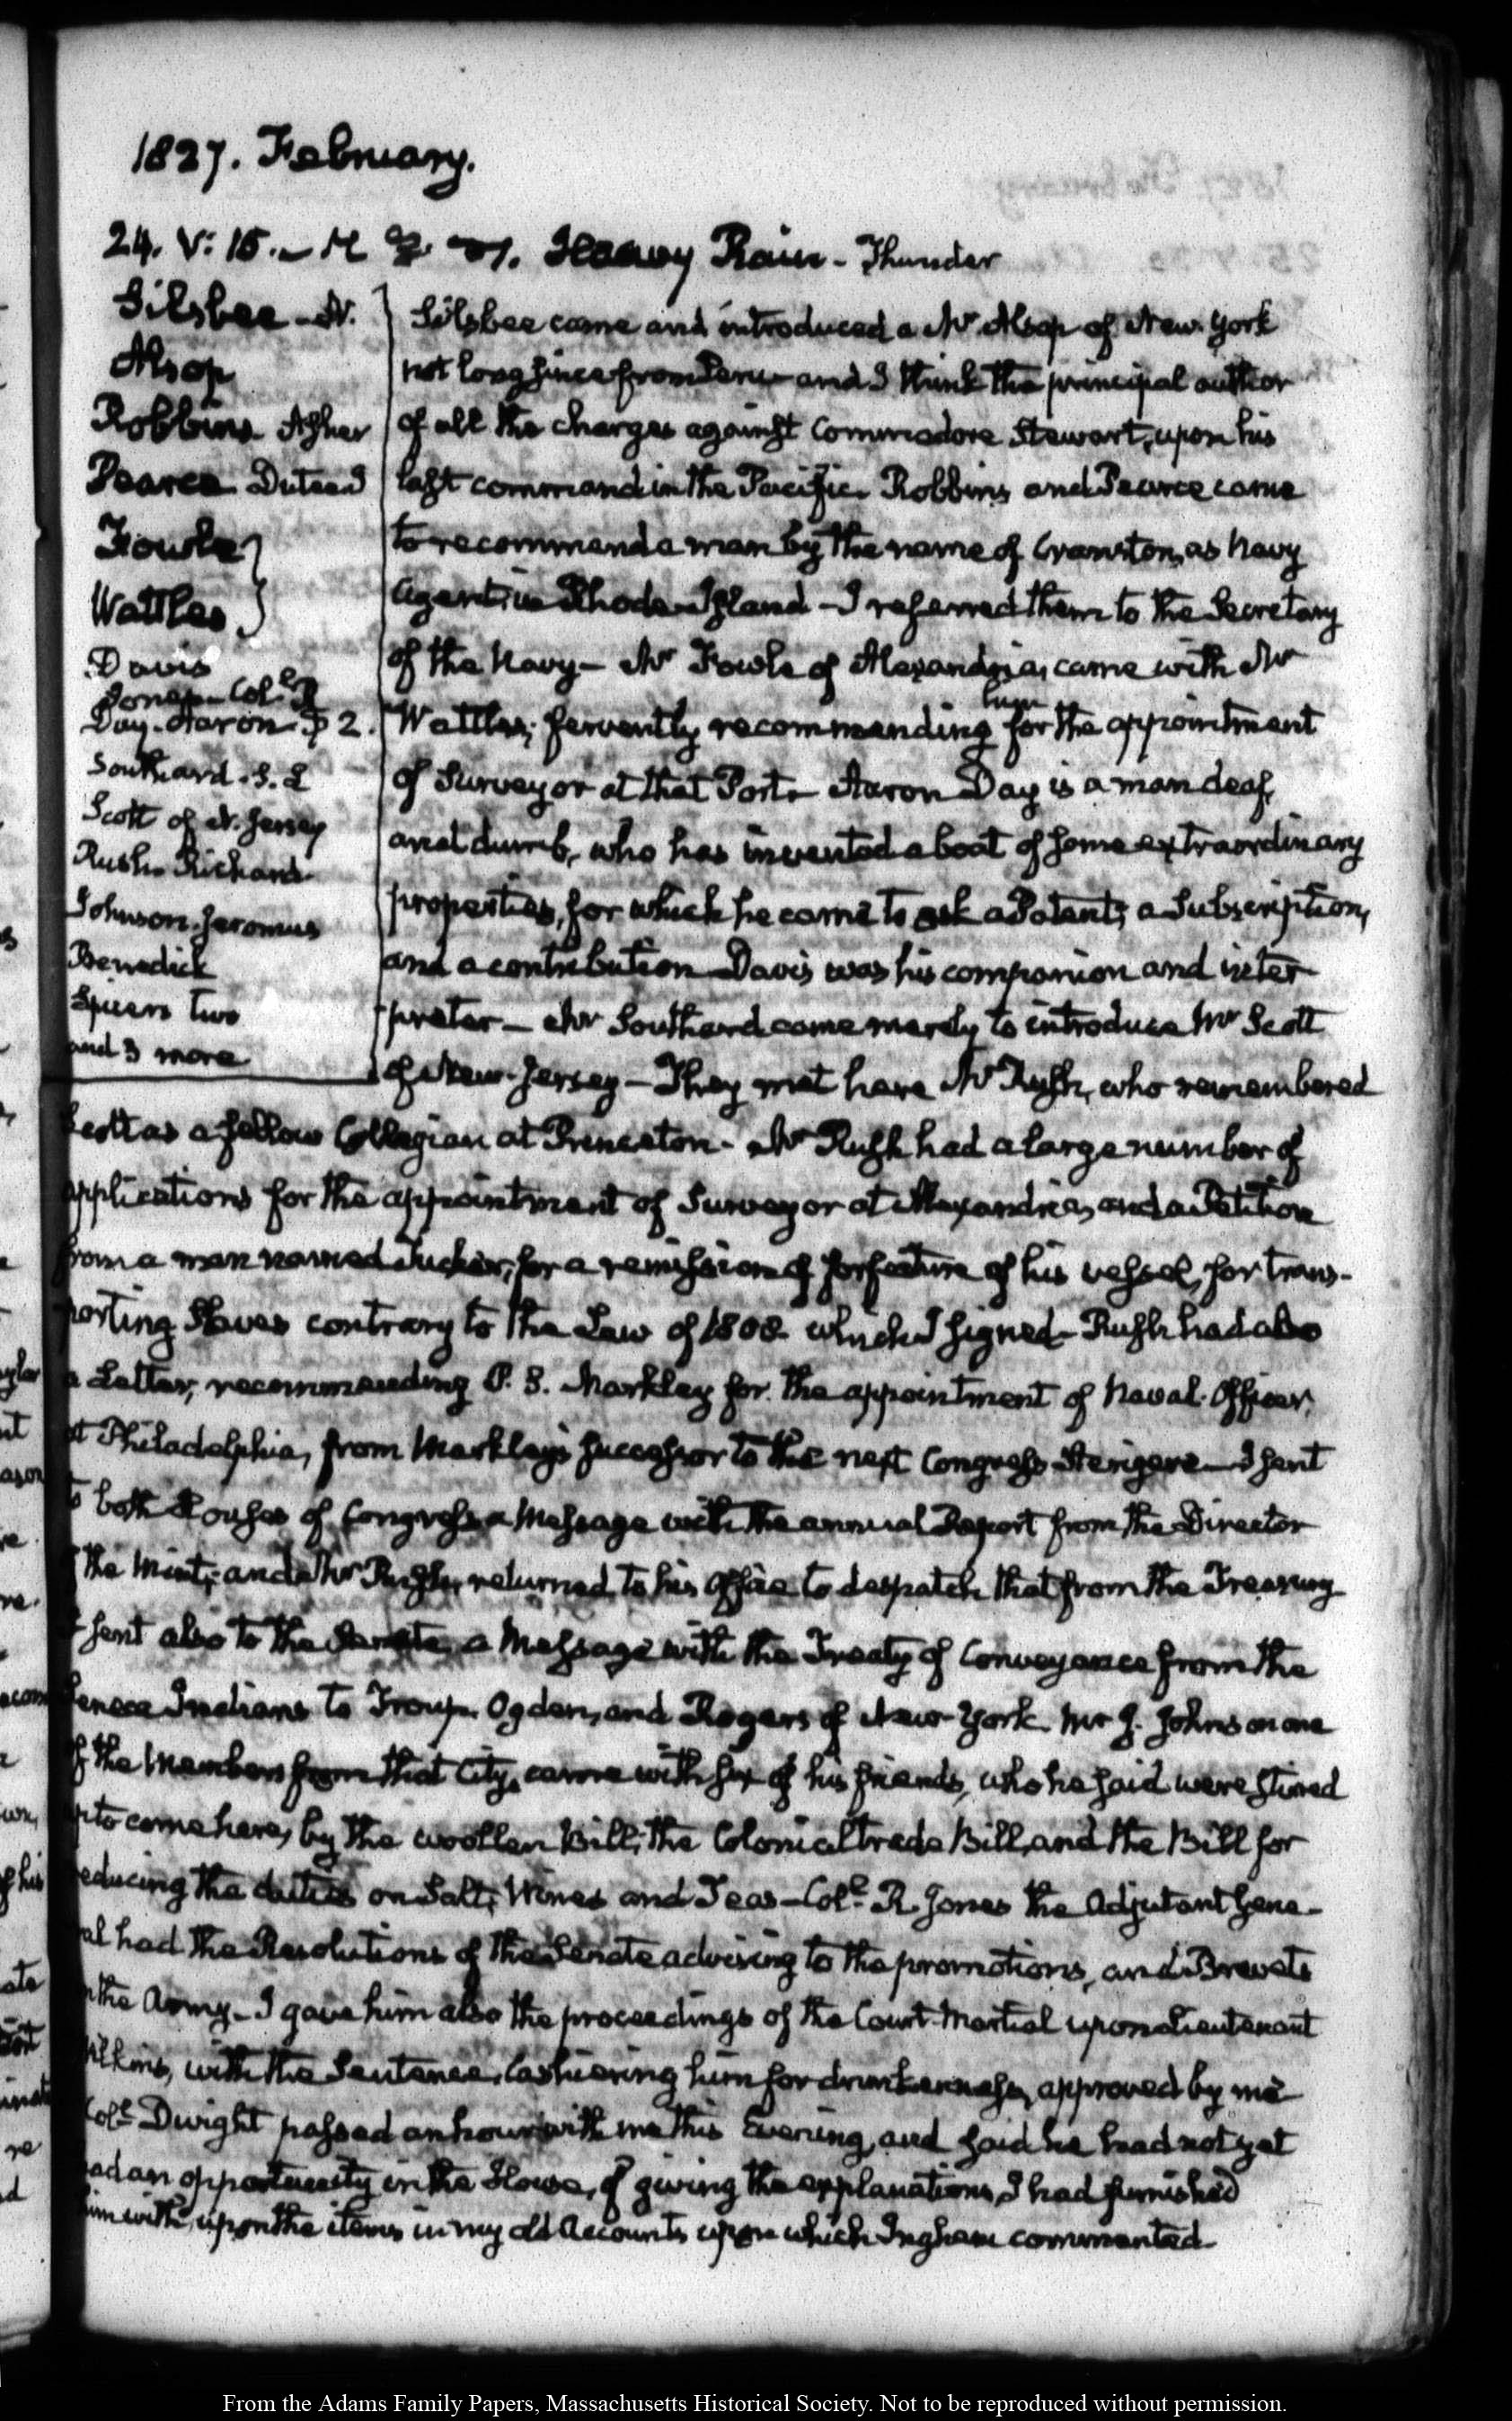 1827. February.
24. V: 15. Heavy Rain - Thunder
Silsbee - N.
Alsop
Robbins Asher
Pearce Dutee J
Fowle
Wattles
Davis
Jones - Coll. R
Day. Aaron - & 2.
Southard. S. L
Scott of N. Jersey
Rush. Richard
Johnson. Jeromus
Benedick
Spicers two
and 3 more
Silsbee came and introduced a Mr. Alsop of New. York
not long since from Peru - and I think the principal author
of all the charges against Commodore Stewart, upon his
last command in the Pacific. Robbins and Pearce came
to recommend a man by the name of Cranston, as Navy
Agent in Rhode-Island - I referred them to the Secretary
of the Navy - Mr Fowle of Alexandria, came with Mr
Wattles; fervently recommending him for the appointment
of Surveyor at that Port - Aaron Day is a man deaf,
and dumb, who has invented a boat of some extraordinary
properties, for which he came to ask a Patent; a Subscription,
and a contribution Davis was his companion and inter-
preter - Mr Southard came merely to introduce Mr Scott
of New-Jersey - They met here Mr Rush, who remembered
Scott as a fellow Collegian at Princeton - Mr Rush had a large number of
applications for the appointment of Surveyor at Alexandria, and a Petition
from a man named Tucker, for a remission of forfeiture of his vessel, for trans-
porting Slaves contrary to the Law of 1808 which I signed - Rush had also
a Letter, recommending P. S. Markley for the appointment of Naval-Officer,
at Philadelphia, from Markley's successor to the next Congress Sterigere - I sent
to both Houses of Congress a Message with the annual Report from the Director
of the Mint; and Mr Rush, returned to his Office to despatch that from the Treasury
I sent also to the Senate, a Message with the Treaty of Conveyance from the
Seneca Indians to Troup, Ogden, and Rogers of New-York. Mr J. Johnson one
of the Members from that City, came with six of his friends, who he said were stirred
up to come here, by the woollen Bill, the Colonial trade Bill, and the Bill for
reducing the duties on Salt, Wines and Teas - Coll. R. Jones the Adjutant Gene-
ral had the Resolutions of the Senate advising to the promotions, and Brevets
in the Army - I gave him also the proceedings of the Court-Martial upon Lieutenant
Wilkins, with the Sentence, cashiering him for drunkenness, approved by me
Coll. Dwight passed an hour with me this Evening, and said he had not yet
had an opportunity in the House, of giving the explanations, I had furnished
him with, upon the items in my old Accounts upon which Ingham commented -
From the Adams Family Papers, Massachusetts Historical Society. Not to be reproduced without permission.